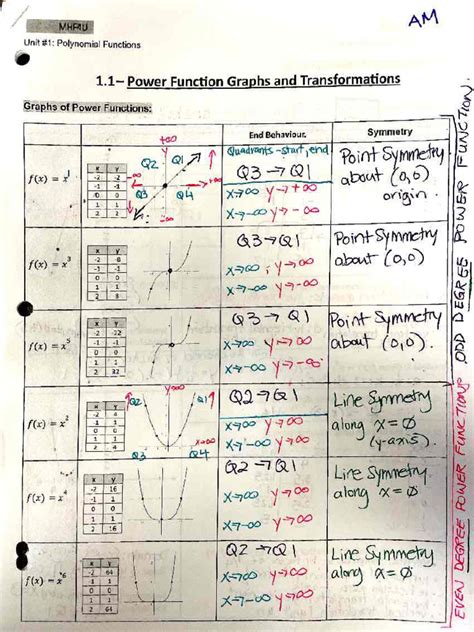 MHF4U
AM
Unit #1: Polynomial Functions
1.1– Power Function Graphs and Transformations
Graphs of Power Functions:
End Behaviour.
Symmetry
Quadrants - start, end
f(x) = x¹
x y
-2 -2
-1 -1
0 0
1 1
2 2
+∞
Q2 Q1
-∞
Q3 Q4
-∞
Q3 → Q1
x→∞ y→+∞
x→-∞ y→-∞
Point Symmetry
about (0,0)
origin.
f(x) = x³
x y
-2 -8
-1 -1
0 0
1 1
2 8
Q3 → Q1
x→∞, y→∞
x→-∞ y→-∞
Point Symmetry
about (0,0)
f(x) = x⁵
x y
-2 -32
-1 -1
0 0
1 1
2 32
Q3 → Q1
x→∞ y→∞
x→-∞ y→-∞
Point Symmetry
about (0,0).
f(x) = x²
x y
-2 4
-1 1
0 0
1 1
2 4
y→∞
Q2 Q1
x→∞
Q3 Q4
Q2 → Q1
x→∞ y→∞
x→-∞ y→∞
Line Symmetry
along x=0
(y-axis)
f(x) = x⁴
x y
-2 16
-1 1
0 0
1 1
2 16
Q2 → Q1
x→∞ y→∞
x→-∞ y→∞
Line Symmetry
along x=0
f(x) = x⁶
x y
-2 64
-1 1
0 0
1 1
2 64
Q2 → Q1
x→∞ y→∞
x→-∞ y→∞
Line Symmetry
along x=0
ODD DEGREE POWER FUNCTION
EVEN DEGREE POWER FUNCTIONS